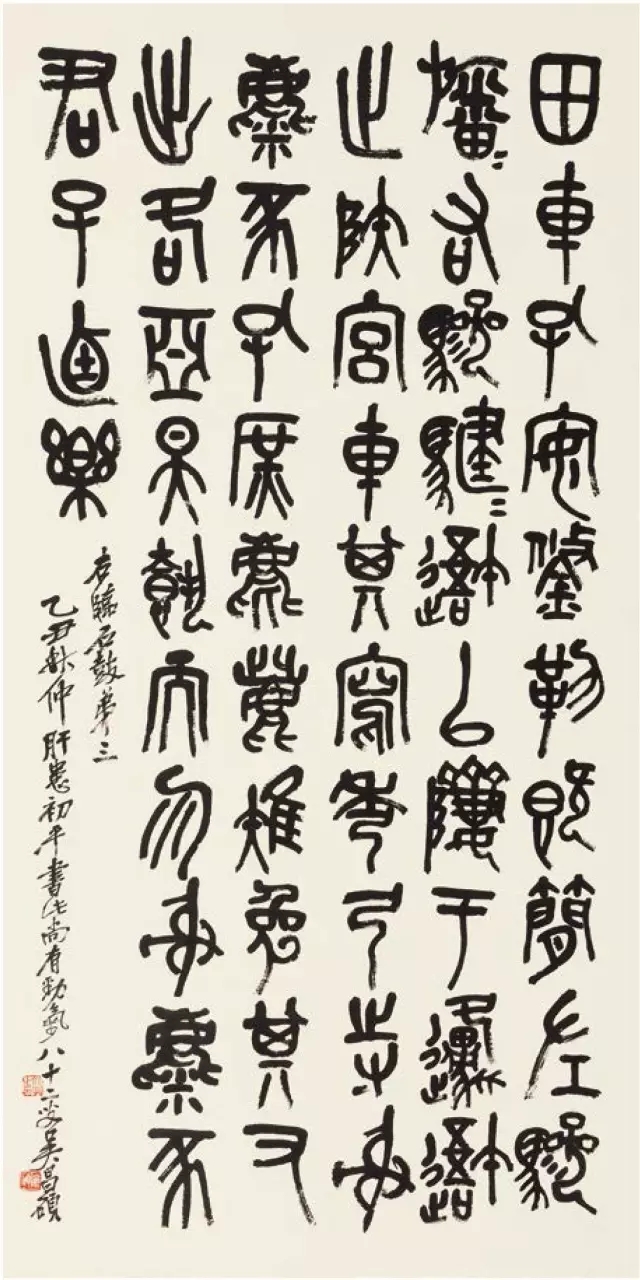 田車孔安鋚勒既簡左驂
旛=右驂騝=䢱以隮于邍䢱
止陝宮車其寫秀弓寺射
麋豕孔庶麀鹿雉兔其又
出各亞昊執而勿射麋豕
君子逌樂
右臨石鼓弟三
乙丑秋仲肝恙初平書此尚有勁氣八十二叟吳昌碩